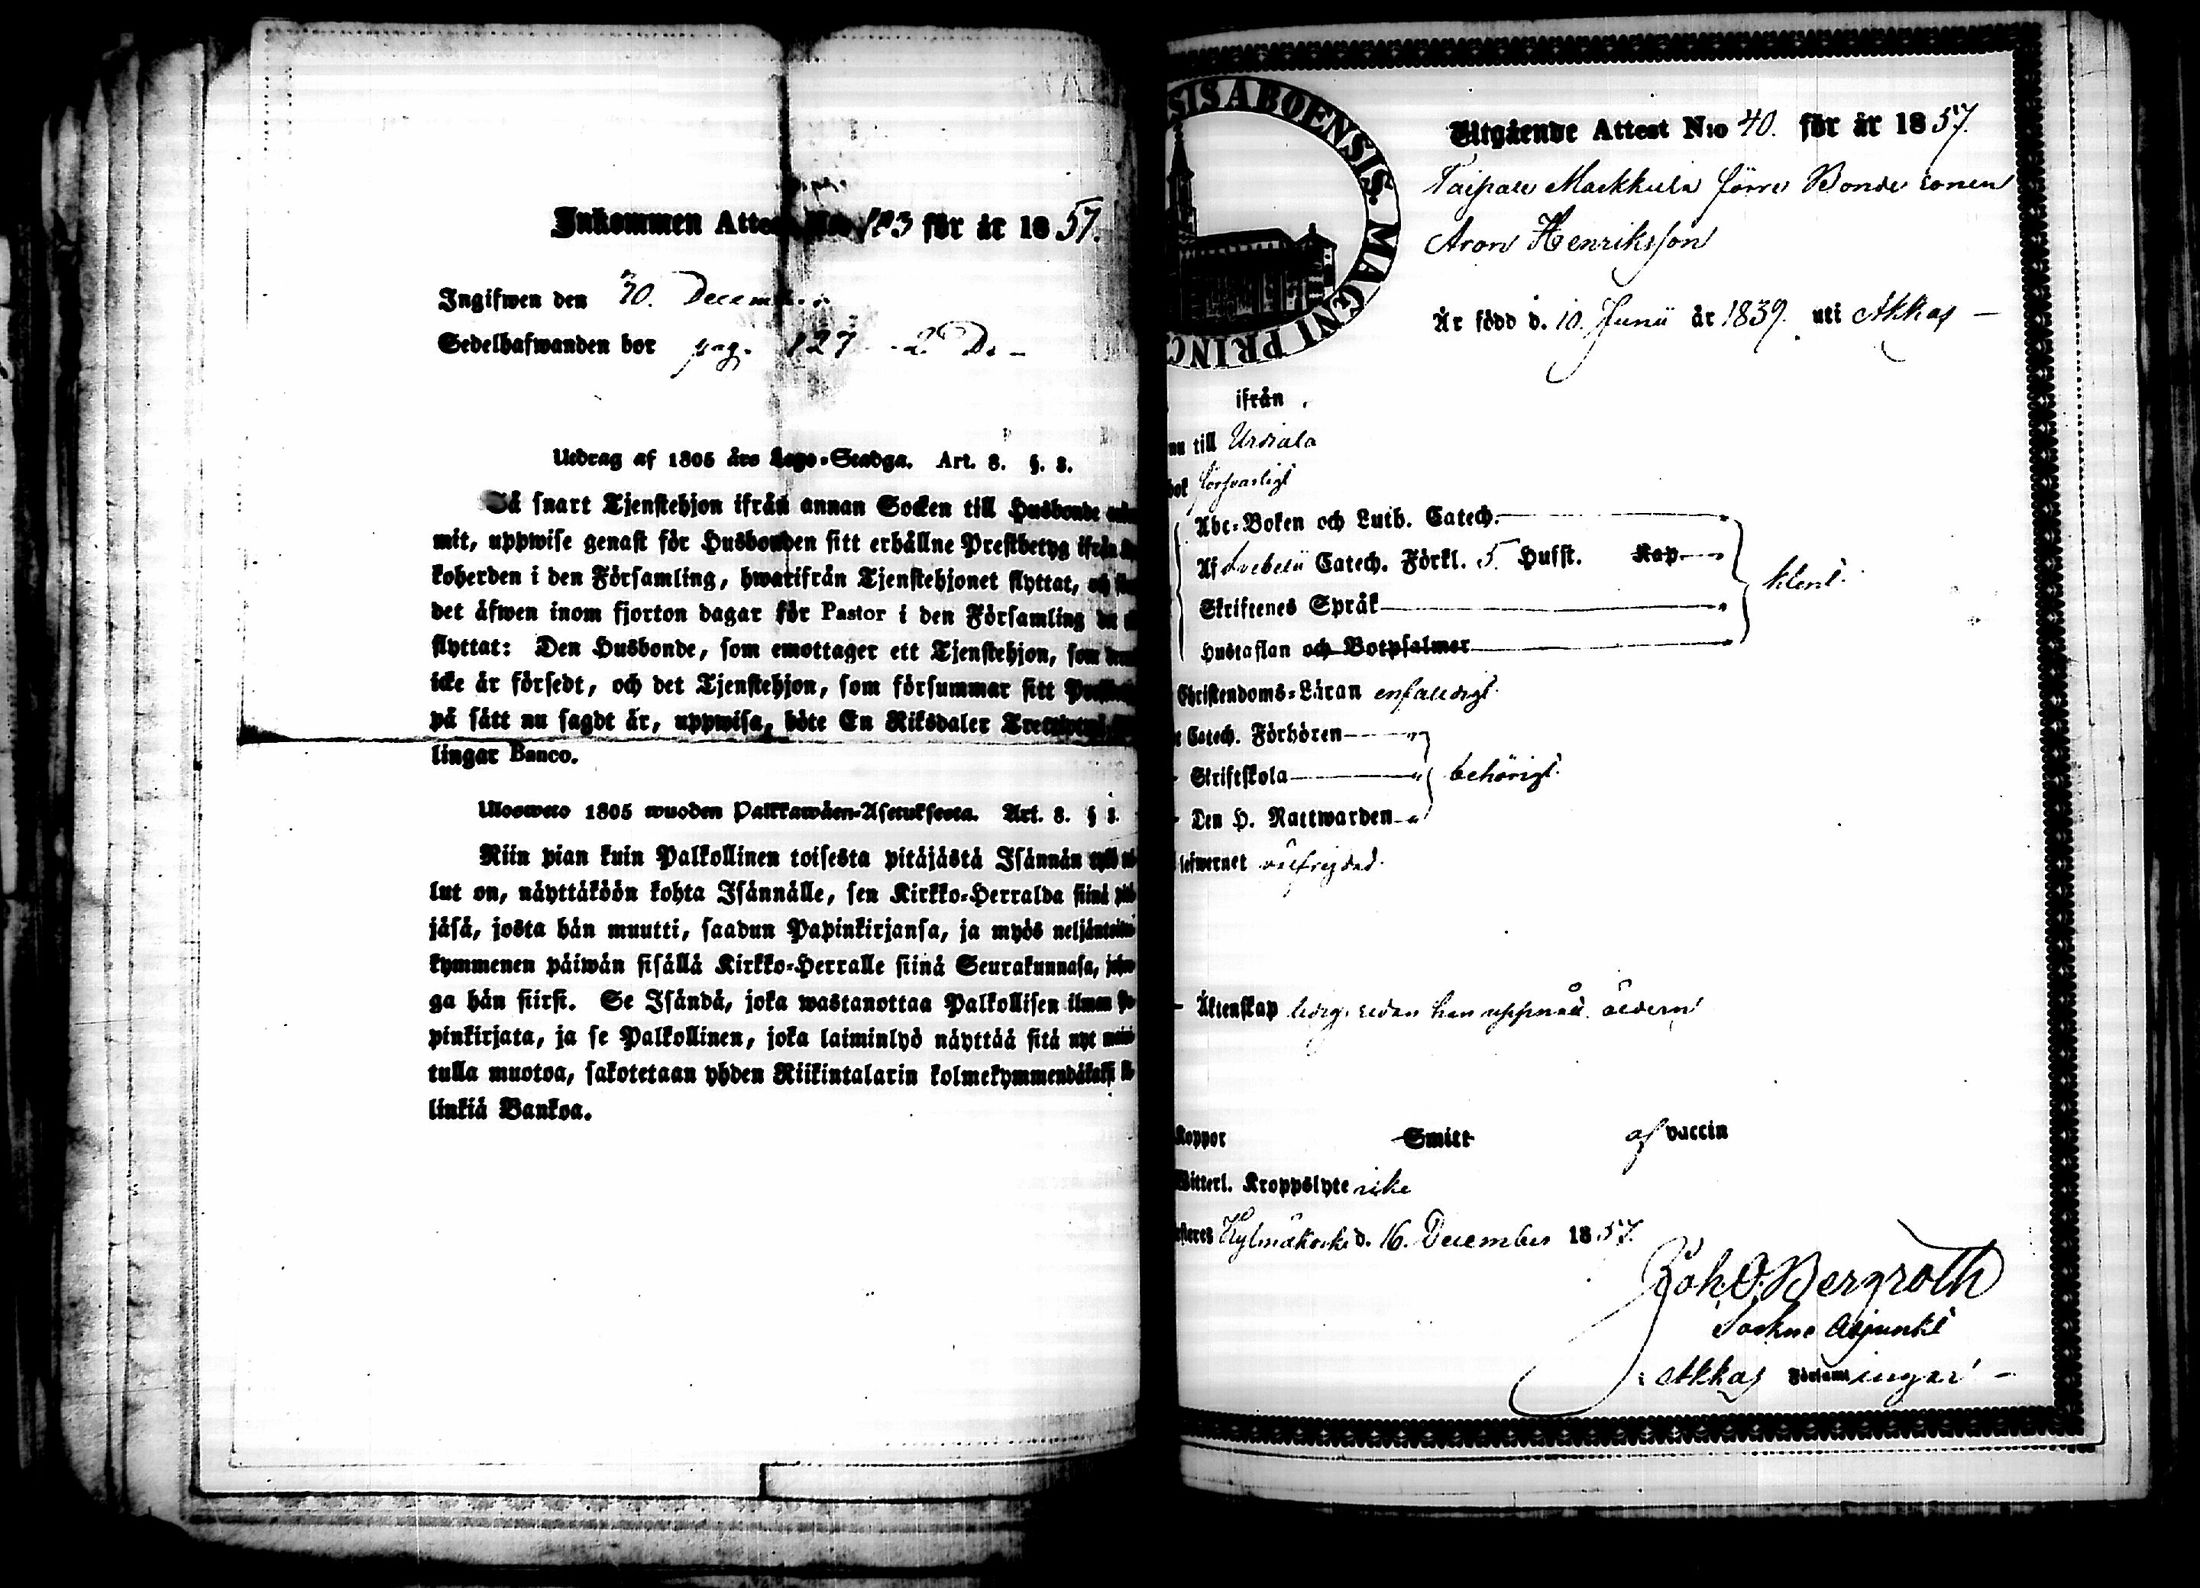 Inkommen Attest N:o 123 för år 1857.
Ingifwen den 30. December
Sedelhafwanden bor pag. 127
Utdrag af 1805 års Lego-Stadga. Art. 8. §. 8.
Så snart Tjenstehjon ifrån annan Socken till Husbonde
mit, uppwise genast för Husbonden sitt erhållne Prestbetyg ifrån
koherden i den Församling, hwarifrån Tjenstehjonet flyttat, och
det äfwen inom fjorton dagar för Pastor i den Församling
flyttat: Den Husbonde, som emottager ett Tjenstehjon, som
icke är försedt, och det Tjenstehjon, som försummar sitt
på sätt nu sagdt är, uppwisa, böte En Riksdaler
lingar Banco.
Ulosweto 1805 wuoden Palkkawäen-Asetuksesta. Art. 8. §
Niin pian kuin Palkollinen toisesta pitäjästä Isännän
lut on, näyttäköön kohta Isännälle, sen Kirkko-Herralda siinä
jäsä, josta hän muutti, saadun Papinkirjansa, ja myös
kymmenen päiwän sisällä Kirkko-Herralle siinä Seurakunnasa,
ga hän siirsi. Se Isändä, joka wastanottaa Palkollisen ilman
pinkirjata, ja se Palkollinen, joka laiminlyö näyttää sitä nyt
tulla muotoa, sakotetaan yhden Riikintalarin kolmekymmendäkaksi
linkiä Bankoa.
SIS ABOENSIS. MAGNI PRINC
Utgående Attest N:o 40. för år 1857.
Taipale Markkula förre Bonde sonen
Aron Henriksson
Är född d. 10. Junii år 1839. uti Akkas
ifrån
till Urdiala
bok försvarligt
Abc-Boken och Luth. Catech.
Af Svebelii Catech. Förkl. 5. Hufst. Kap
Skriftenes Språk
Hustaflan och Botpsalmer
klent
Christendoms-Läran enfaldigt
Catech. Förhören
Skriftskola
Den H. Nattwarden
behörigt
lefwernet oklandrad
Äktenskap ledig, sedan han uppnått åldern
Koppor Smitt af vaccin
Witterl. Kroppslyte icke
Kylmäkoski d. 16. December 1857.
Joh. O. Bergroth
Sockne Adjunkt
i Akkas Församlingar